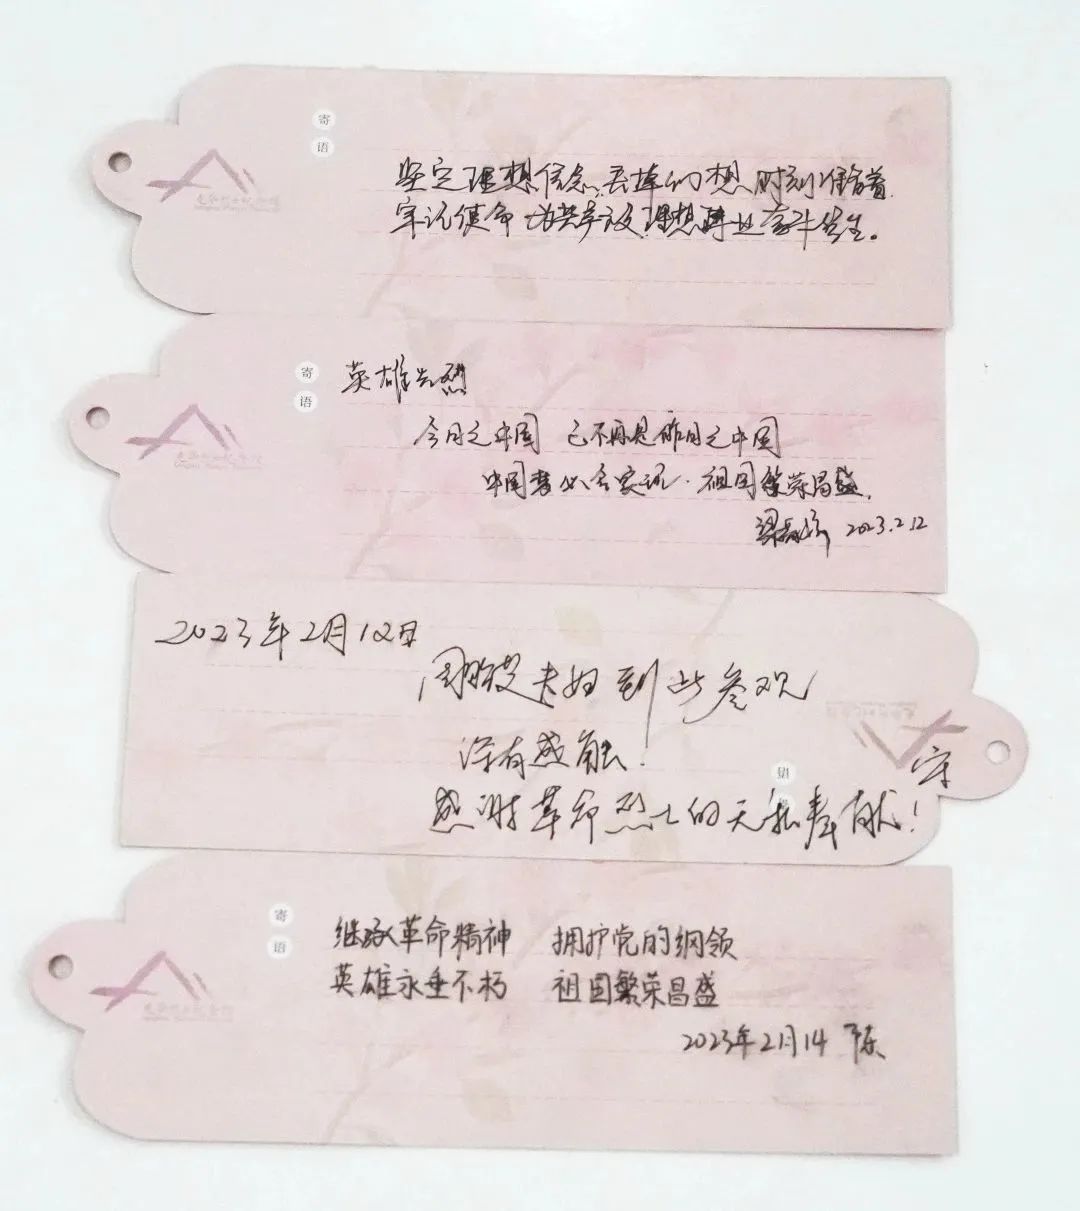 寄语
坚定理想信念,丢掉幻想,时刻准备着.
牢记使命 为共产主义理想事业奋斗终生。
寄语
英雄先烈
今日之中国 已不再是昨日之中国
中国 必会实现. 祖国繁荣昌盛.
2023.2.12
2023年2月12日
夫妇到此参观
深有感触!
感谢革命烈士的无私奉献!
寄语
继承革命精神 拥护党的纲领
英雄永垂不朽 祖国繁荣昌盛
2023年2月14